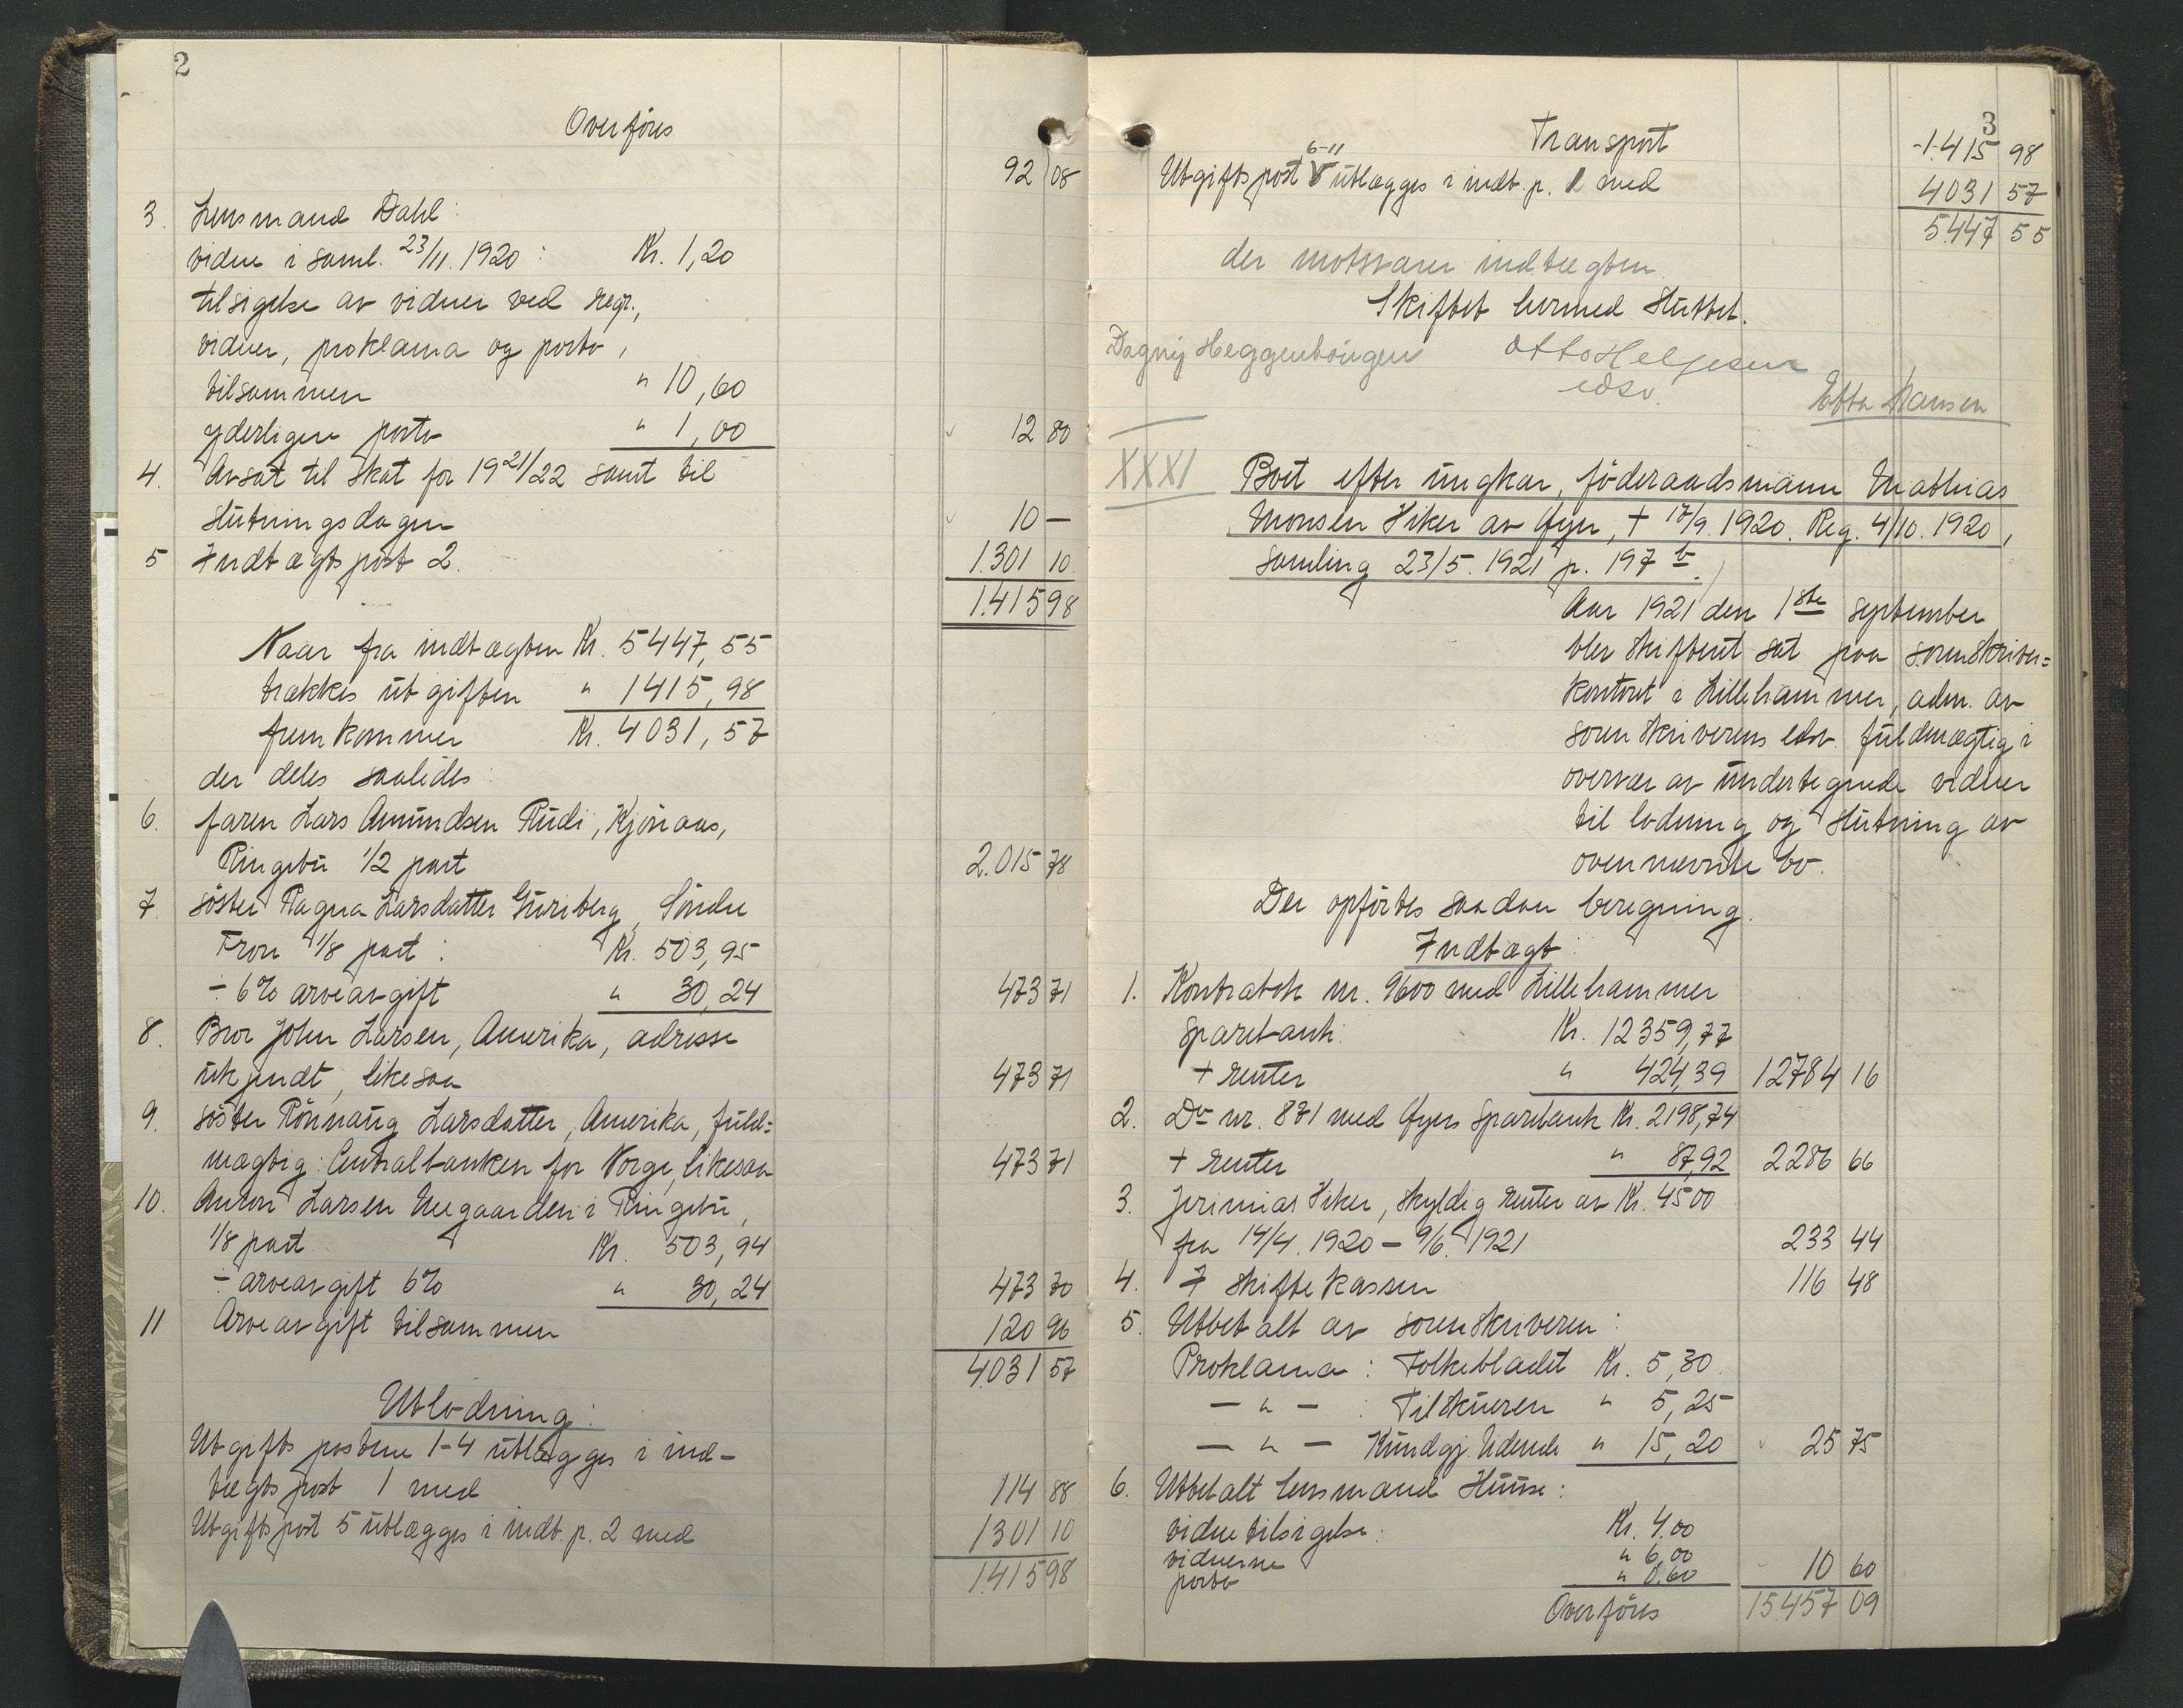 2
Overföres
92 08
3. Lensmand Dahl:
vidne i saml. 23/11. 1920: Kr. 1,20
tilsigelse av vidner ved regr.,
vidner, proklama og porto,
tilsammen " 10,60
yderligere porto " 1,00 12 80
4. Avsat til skat for 1921/22 samt til
slutningsdagen 10 —
5 Indtægtspost 2. 1.301 10
1.415 98
Naar fra indtægten Kr. 5447,55
trækkes utgiften " 1415,98
fremkommer Kr. 4031,57
der deles saaledes:
6. faren Lars Amundsen Rudi, Kjönaas,
Ringebu 1/2 part 2.015 78
7. söster Ragna Larsdatter Guriberg, Söndre
Fron 1/8 part: Kr. 503,95
÷ 6% arveavgift " 30,24 473 71
8. Bror John Larsen, Amerika, adresse
ukjendt, likesaa 473 71
9. söster Rönnaug Larsdatter, Amerika, fuld=
mægtig: Centralbanken for Norge, likesaa 473 71
10. Anton Larsen Neegaarden i Ringebu,
1/8 part Kr. 503,94
÷ arveavgift 6% " 30,24 473 70
11 Arveavgift tilsammen 120 96
4.031 57
Utlodning:
Utgiftspostene 1-4 utlægges i ind-
tægtspost 1 med 114 88
Utgiftspost 5 utlægges i indt. p. 2 med 1301 10
1.415 98
3
Transport 1.415 98
Utgiftspost 6-11 utlægges i indt. p. 1 med 4031 57
5.447 55
der motsvarer indtægten
Skiftet hermed sluttet.
Dagny Heggenhougen Otto Helgesen
edsv.
Ebba Hansen
XXXI Boet efter ungkar, föderaadsmann Mathias
Monsen Hiker av Öyer, + 17/9. 1920. Reg. 4/10. 1920,
samling 23/5. 1921 p. 197 b.
Aar 1921 den 1ste september
blev skifteret sat paa sorenskriver=
kontoret i Lillehammer, adm. av
sorenskriverens edsv. fuldmægtig i
overvær av undertegnede vidner
til lodning og slutning av
ovennævnte bo.
Der opförtes saadan beregning.
Indtægt:
1. Kontrabok nr. 9600 med Lillehammer
Sparebank: Kr. 12359,77
+ renter " 424,39 12784 16
2. Do nr. 871 med Öyers Sparebank Kr. 2198,74
+ renter " 87,92 2286 66
3. Jerimias Hiker, skyldig renter av Kr. 4500
fra 14/4. 1920 — 9/6. 1921 233 44
4. I skiftekassen 116 48
5. Utbetalt av sorenskriveren:
Proklama: Folkebladet Kr. 5,30.
— " — : Tilskueren " 5,25
— " — Kundgj. tidende " 15,20 25 75
6. Utbetalt lensmand Huuse:
vidnetilsigelse: Kr. 4.00
vidnerne " 6,00
porto " 0.60 10 60
Overföres 15.457 09